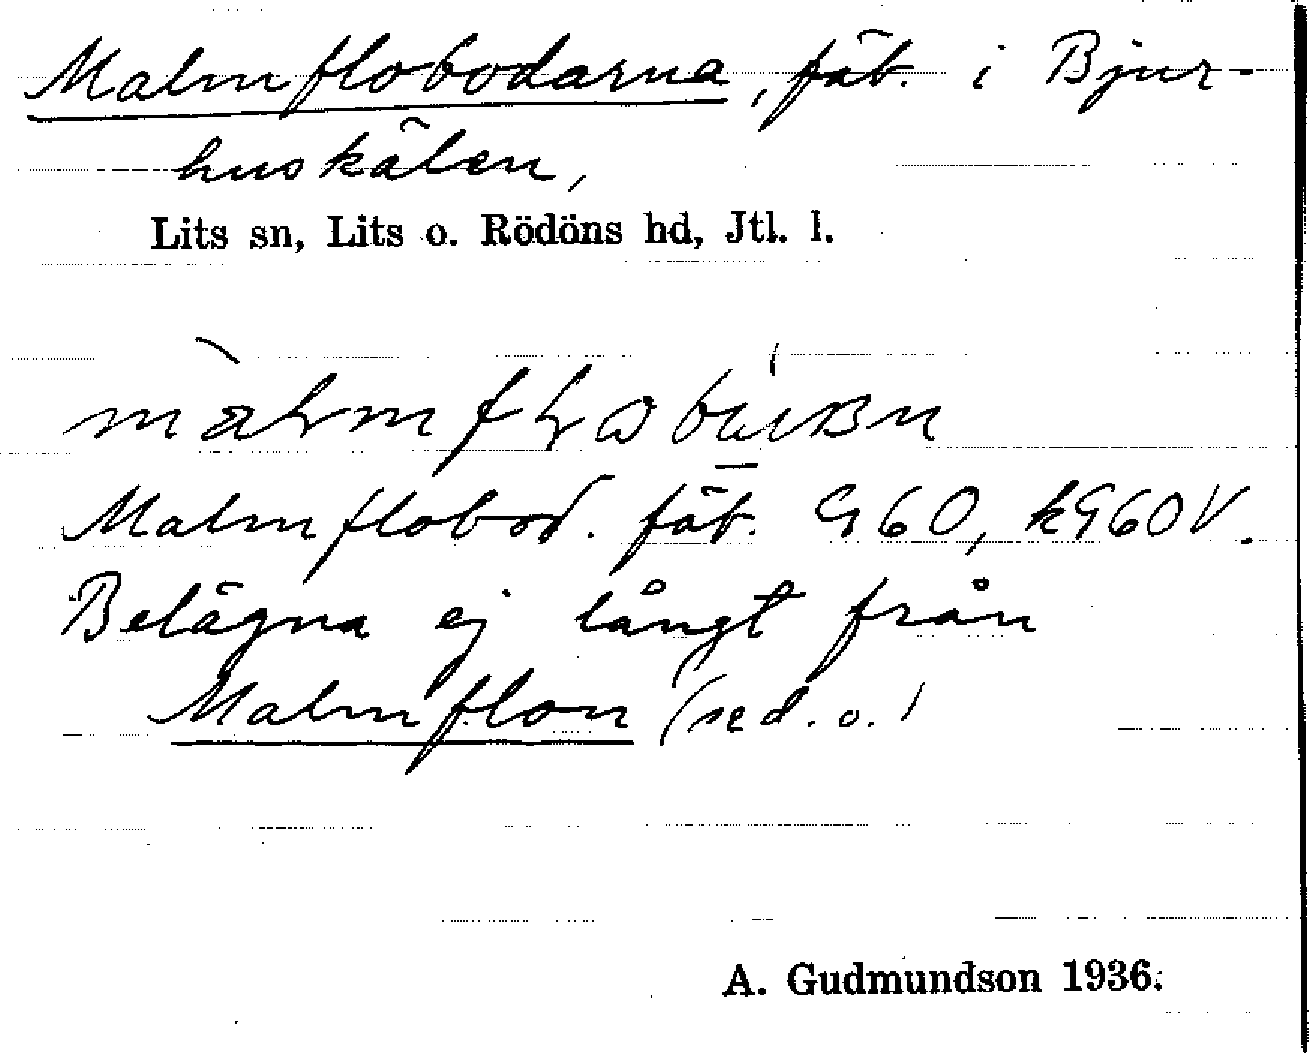 Malmflobodarna, fäb. i Bjur-
huskälen,
Lits sn, Lits o. Rödöns hd, Jtl. l.
Malmflobod. fäb. G60, kG60V.
Belägna ej långt från
Malmflon (se d. o.)
A. Gudmundson 1936.